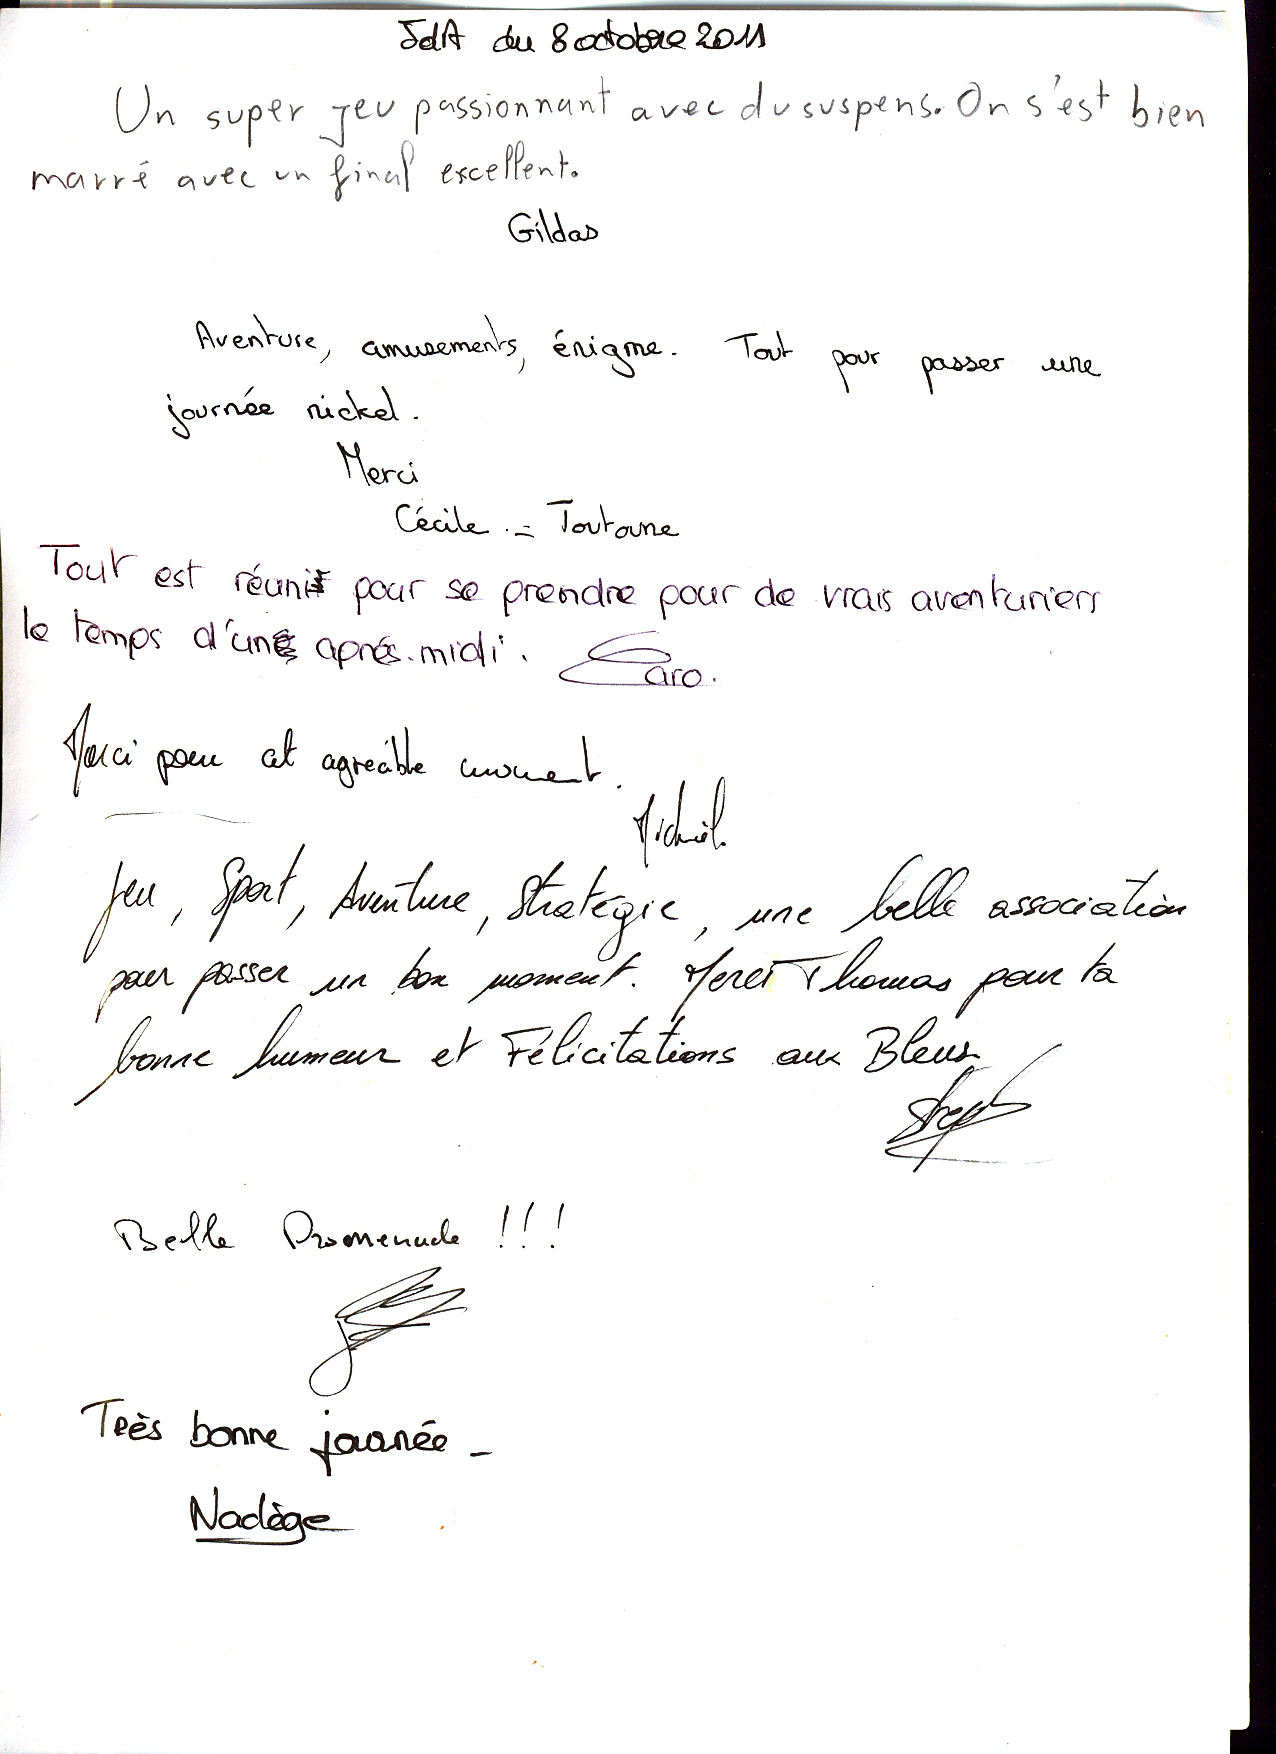 JdA du 8 octobre 2011
Un super jeu passionnant avec du suspens. On s'est bien
marré avec un final excellent.
Gildas
Aventure, amusements, énigme. Tout pour passer une
journée nickel.
Merci
Cécile
Tout est réuni pour se prendre pour de vrais aventuriers
le temps d'une après-midi.
Caro.
Merci pour cet agréable moment.
Michaël.
Jeu, Sport, Aventure, Stratégie, une belle association
pour passer un bon moment. Merci Thomas pour ta
bonne humeur et Félicitations aux Bleus
Steph
Belle Promenade !!!
Très bonne journée -
Nadège